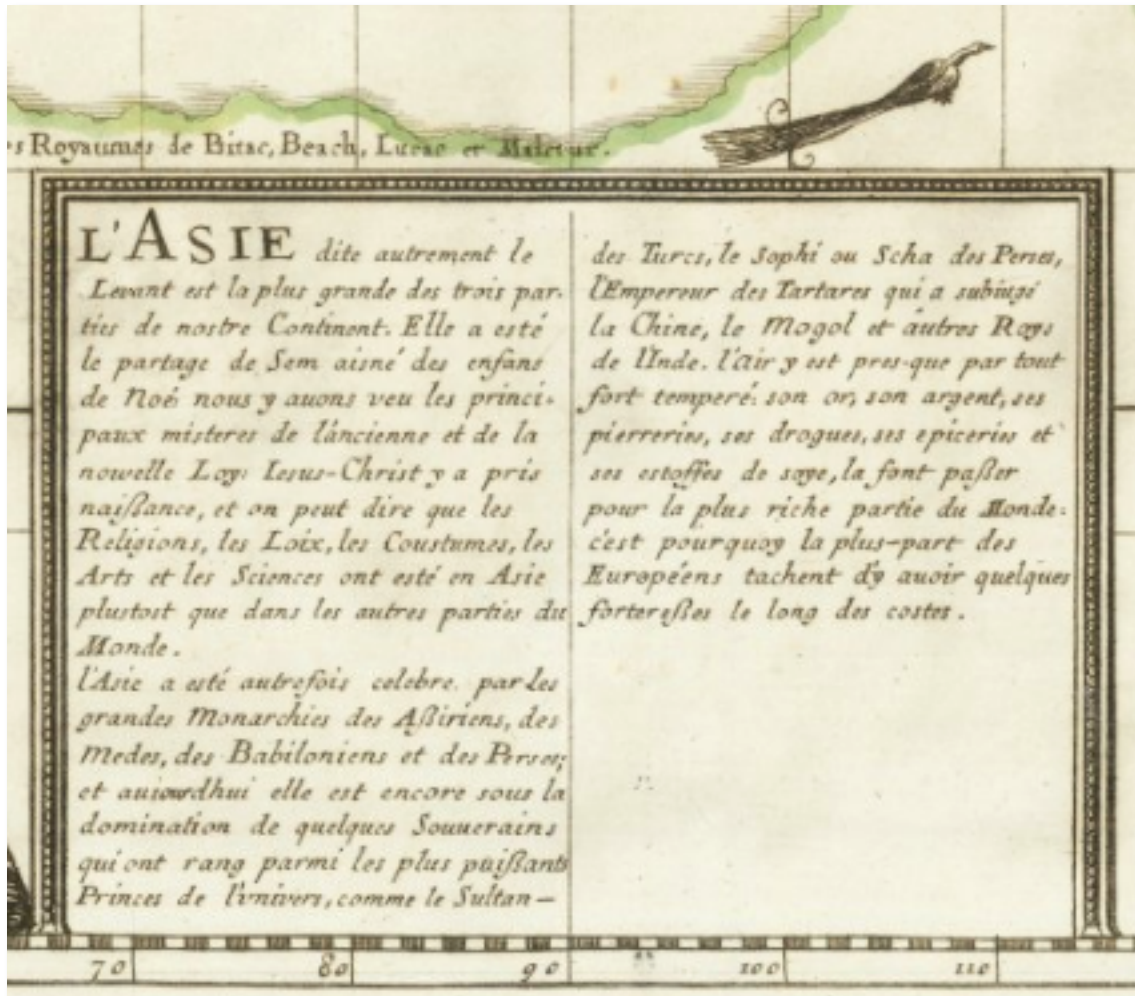 s Royaumes de Bitac, Beach, Lucac et Maletur.
L'ASIE dite autrement le
Levant est la plus grande des trois par-
ties de nostre Continent. Elle a esté
le partage de Sem aisné des enfans
de Noé: nous y auons veu les princi-
paux misteres de l'áncienne et de la
nouvelle Loy: Iesus-Christ y a pris
naißance, et on peut dire que les
Religions, les Loix, les Coustumes, les
Arts et les Sciences ont esté en Asie
plustost que dans les autres parties du
Monde.
l'Asie a esté autrefois celebre par les
grandes Monarchies des Aßiriens, des
Medes, des Babiloniens et des Perses;
et auiourdhui elle est encore sous la
domination de quelques Souuerains
qui ont rang parmi les plus puißants
Princes de l'vnivers, comme le Sultan—
des Turcs, le Sophi ou Scha des Perses,
l'Empereur des Tartares qui a subiugé
la Chine, le Mogol et autres Roys
de l'Inde. l'air y est pres-que par tout
fort temperé: son or, son argent, ses
pierreries, ses drogues, ses epiceries et
ses estoffes de soye, la font paßer
pour la plus riche partie du Monde:
c'est pourquoy la plus-part des
Européens tachent d'y auoir quelques
fortereßes le long des costes.
70 80 90 100 110